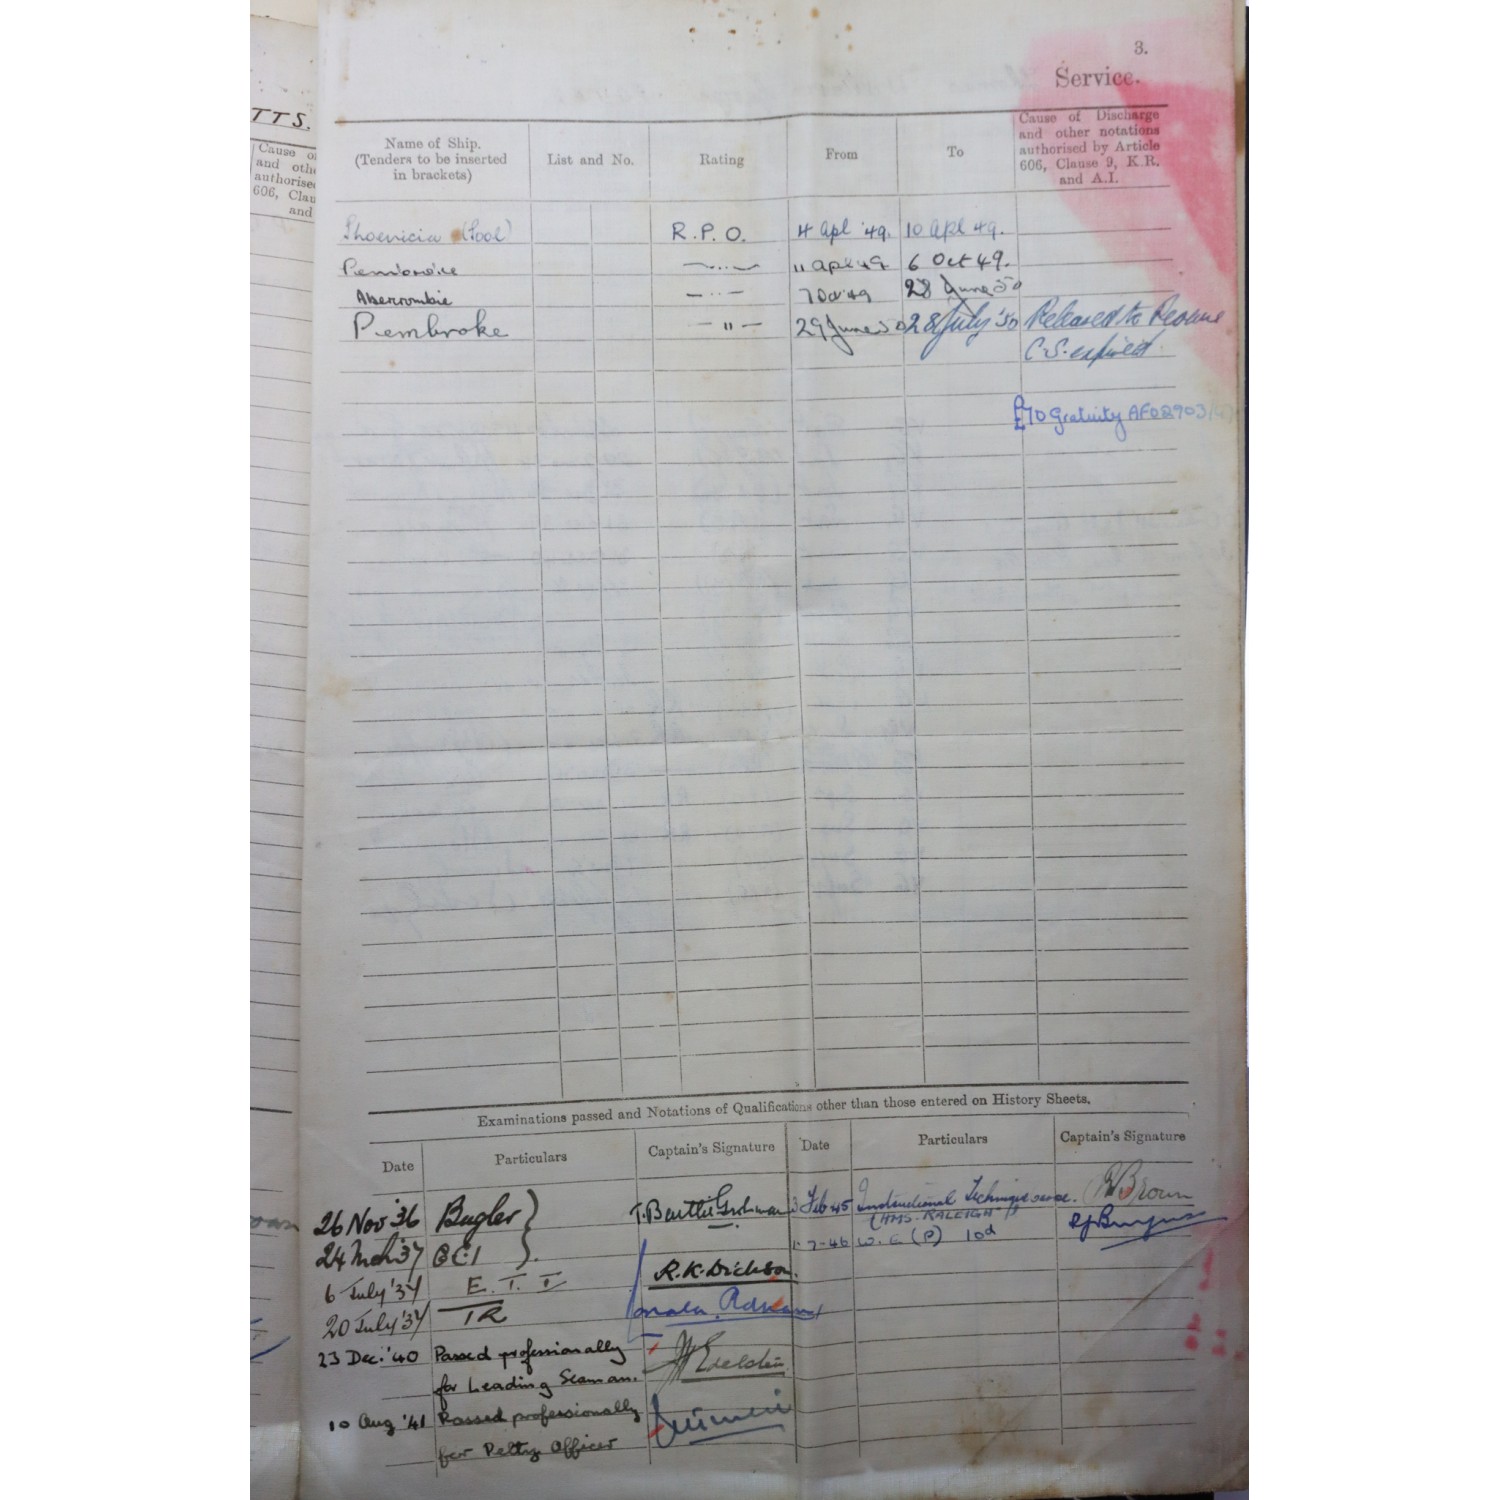 TTS.
Cause of
and oth
authorise
606, Clau
and
3.
Service.
Name of Ship.
(Tenders to be inserted
in brackets)
List and No.
Rating
From
To
Cause of Discharge
and other notations
authorised by Article
606, Clause 9, K.R.
and A.I.
Phoenicia (Pool) R.P.O. 4 Apl '49. 10 Apl 49.
Pembroke —..— 11 Apl 49 6 Oct 49.
Abercrombie —..— 7 Oct 49 28 June 50
Pembroke — " — 29 June 50 28 July '50 Released to
C.S. expired
£70 Gratuity
Examinations passed and Notations of Qualifications other than those entered on History Sheets.
Date Particulars Captain's Signature Date Particulars Captain's Signature
26 Nov '36 Bugler 3 Feb 45 Instructional Technique Brown
(HMS. RALEIGH)
24 Mch '37 1-7-46 W.E (P) 10d
6 July '37 E. T. I R.K. Dickson.
20 July '37 TR
23 Dec. '40 Passed professionally
for Leading Seaman.
10 Aug '41 Passed professionally
for Petty Officer